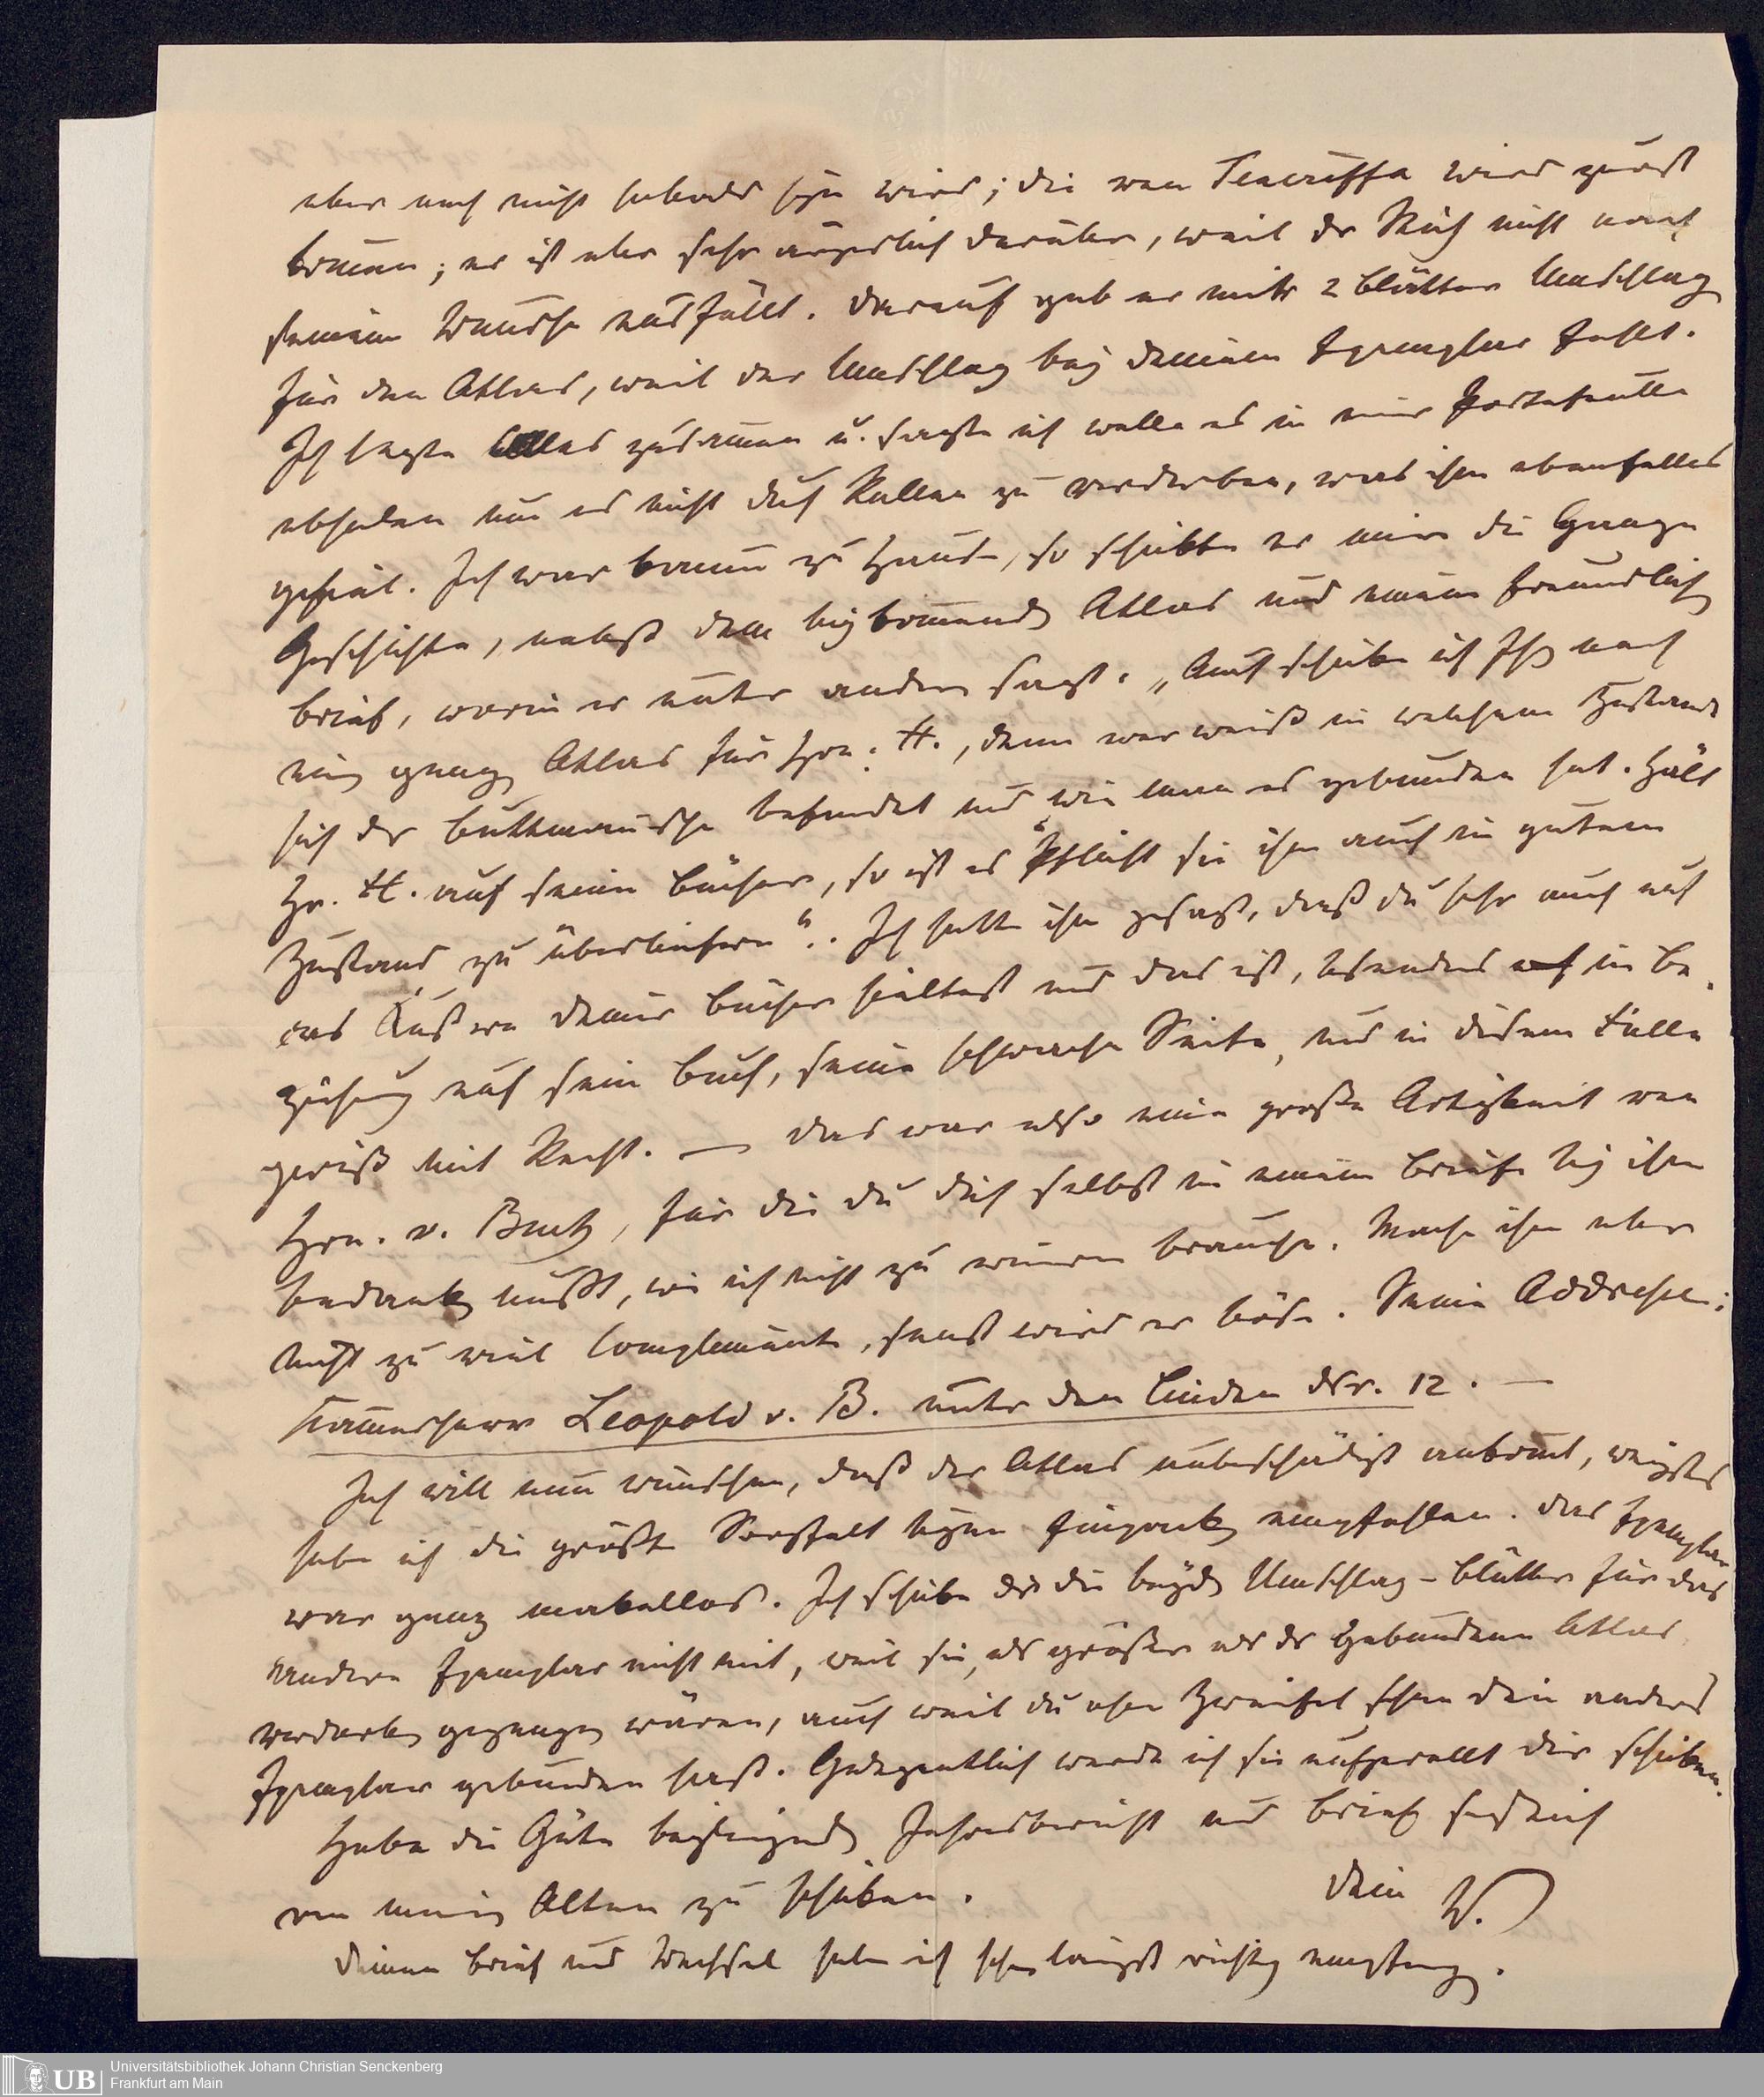 aber noch nicht sobald seyn wird; die von Teneriffa wird zuerst
kom̄en; er ist aber sehr ärgerlich darüber, weil der Stich nicht nach
seinem Wunsche ausfällt. Darauf gab er mir 2 Blätter Umschlag
für den Atlas, weil der Umschlag bey deinem Exemplar fehlt.
Ich legte Alles zusam̄en u. sagte ich wolle es in einer Portefeuille
abholen um es nicht durch Rollen zu verderben, was ihm ebenfalls
gefiel. Ich war kaum zu Hause, so schickte er mir die ganze
Geschichte, nebst dem beykom̄enden Atlas und einem freundlichen
Brief, worin er unter andern sagt. „Auch schicke ich Ihnen noch
einen ganzen Atlas für Hrn. H., denn wer weiß in welchem Zustande
sich der Buttmannsche befindet und wie man es gebunden hat. Hält
Hr. H. auf seine Bücher, so ist es Pflicht sie ihm auch in gutem
Zustand zu überliefern“. Ich hatte ihm gesagt, daß du sehr auch auf
das Äußere deiner Bücher hieltest und das ist, besonders in Be-
ziehung auf sein Buch, seine schwache Seite, und in diesem Falle
gewiß mit Recht. — Das war also eine große Artigkeit von
Hrn. v. Buch, für die du dich selbst in einem Briefe bey ihm
bedanken mußt, wie ich nicht zu erinnern brauche. Mache ihm aber
nicht zu viel Complimente, sonst wird er böse. Seine Addresse:
Kam̄erherr Leopold v. B. unter den Linden Nr. 12. —
Ich will nun wünschen, daß der Atlas unbeschädigt ankom̄t, wenigstens
habe ich die größte Sorgfalt beym Einpacken empfohlen. Das Exemplar
war ganz makellos. Ich schicke dir die beyden Umschlag-Blätter für das
andere Exemplar nicht mit, weil sie, als größer als der gebundene Atlas
verdorben gegangen wären, auch weil du ohne Zweifel schon dein anderes
Exemplar gebunden hast. Gelegentlich werde ich sie aufgerollt dir schicken.
Habe die Güte beyliegenden Jahresbericht und Brief
von meinen Alten zu schicken. Dein W.
Deinen Brief und Wechsel habe ich schon längst richtig empfangen.
Universitätsbibliothek Johann Christian Senckenberg
Frankfurt am Main
UB